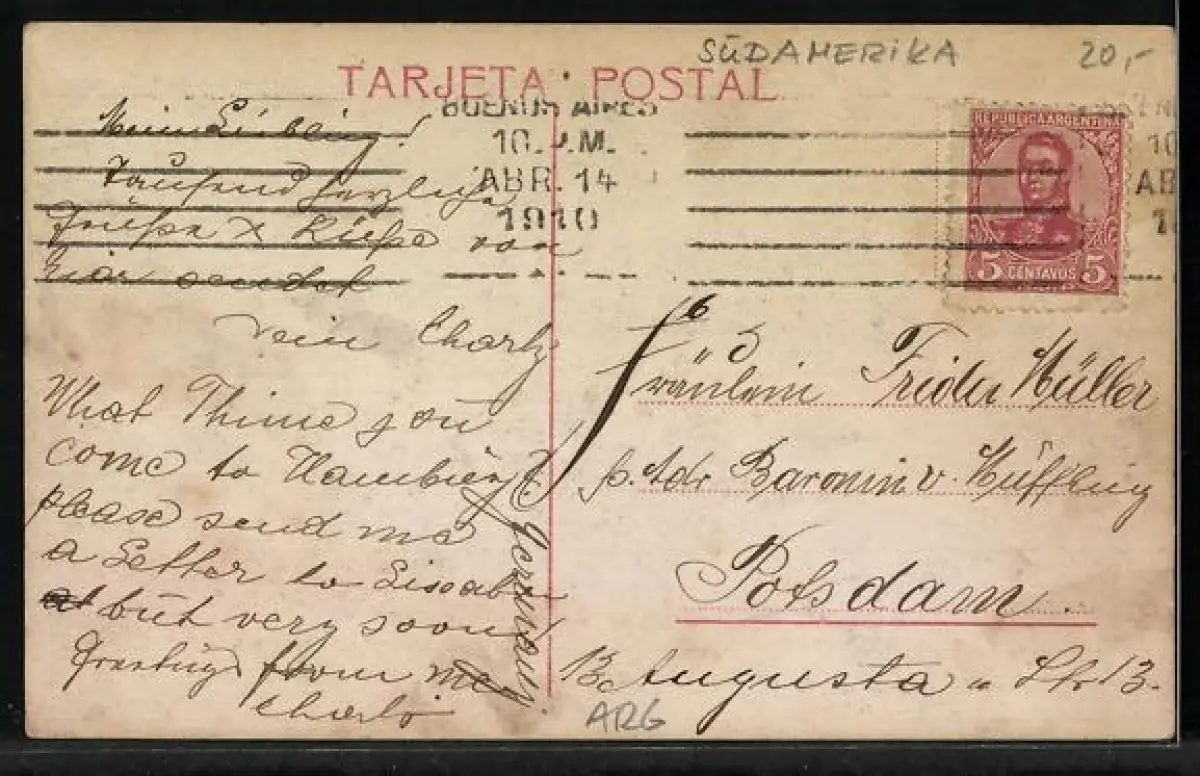 SÜDAMERIKA 20,-
TARJETA POSTAL
BUENOS AIRES
10. P.M.
ABR. 14
1910
REPUBLICA ARGENTINA
5 CENTAVOS 5
Mein Liebling!
Tausend herzliche
Grüße & Küße von
hier sendet
Dein Charly
What Thime you
come to Hamburg (?)
please send me
a Letter to Lissabon
but very soon!
Greetings from me
Charly
Fräulein Frieda Müller
p. Adr Baronin v. Müffling
Potsdam.
Germany.
13 Augusta " Str 13.
ARG